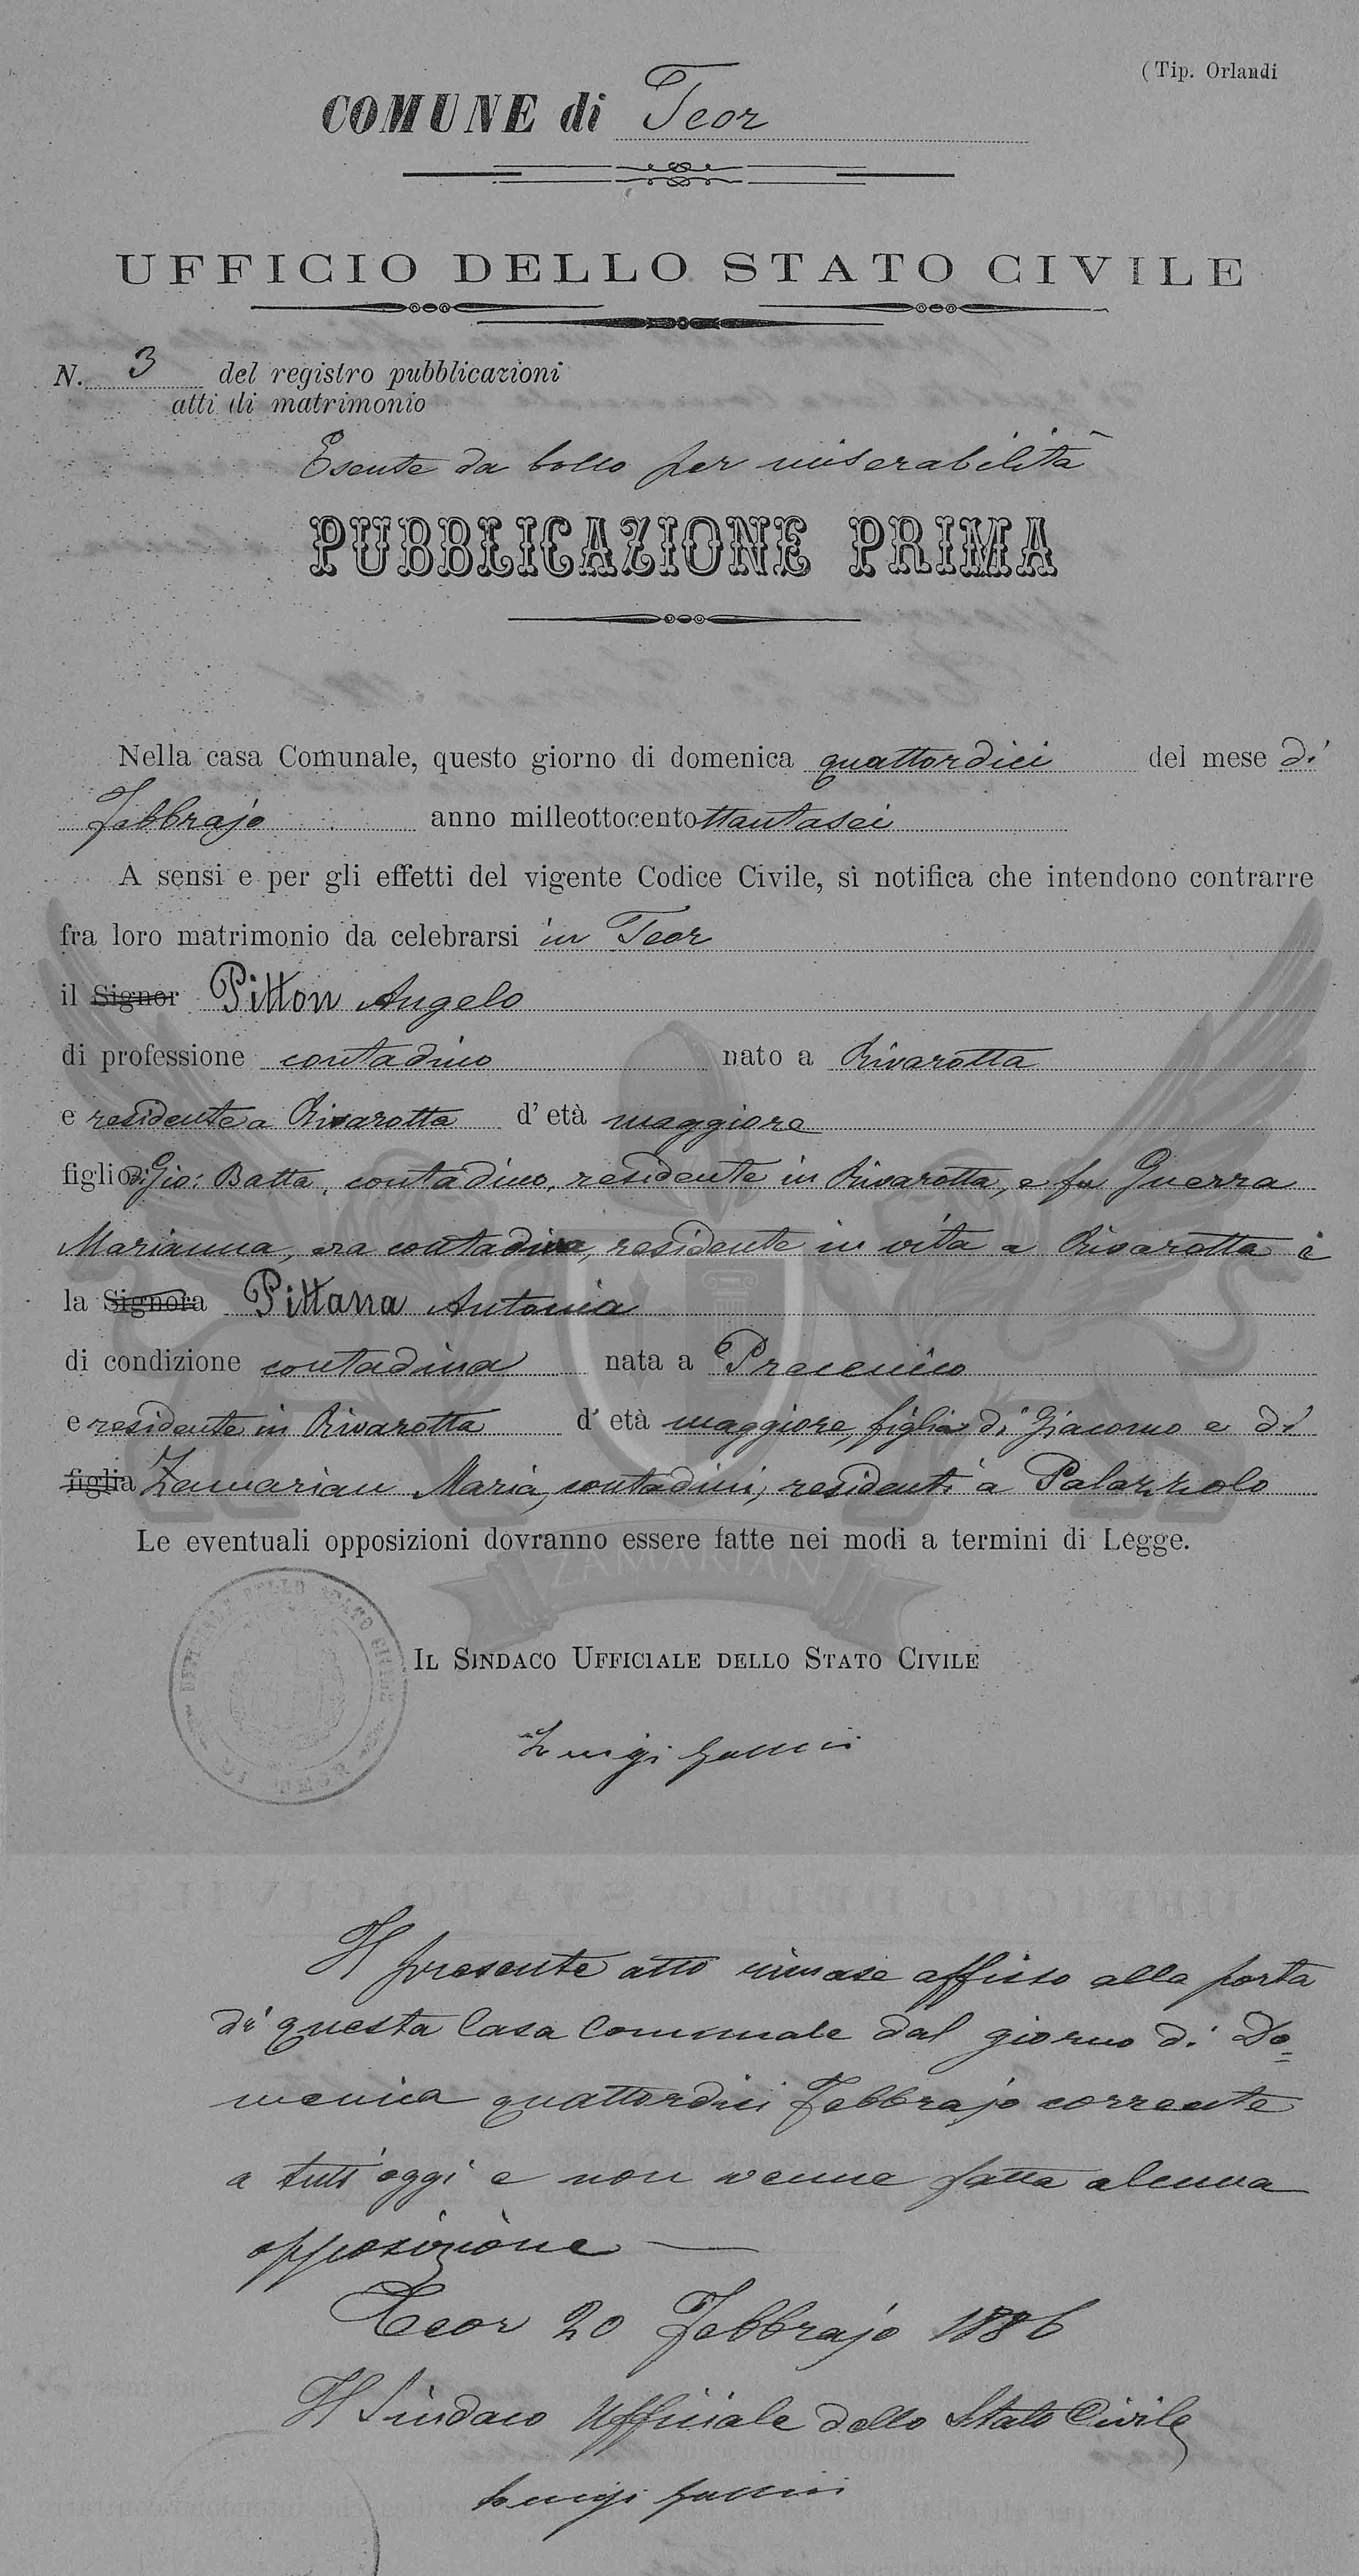 (Tip. Orlandi
COMUNE di Teor
UFFICIO DELLO STATO CIVILE
N. 3 del registro pubblicazioni
atti di matrimonio
Esente da bollo per miserabilità
PUBBLICAZIONE PRIMA
Nella casa Comunale, questo giorno di domenica quattordici del mese di
Febbrajo anno milleottocentottantasei
A sensi e per gli effetti del vigente Codice Civile, si notifica che intendono contrarre
fra loro matrimonio da celebrarsi in Teor
il Signor Pitton Angelo
di professione contadino nato a Rivarotta
e residente a Rivarotta d'età maggiore
figlio di Gio: Batta, contadino, residente in Rivarotta, e fu Guerra
Marianna, era contadina, residente in vita a Rivarotta e
la Signora Pittana Antonia
di condizione contadina nata a Precenico
e residente in Rivarotta d'età maggiore, figlia di Giacomo e di
figlia Zamarian Maria, contadini, residenti a Palazzolo
Le eventuali opposizioni dovranno essere fatte nei modi a termini di Legge.
ZAMARIAN
UFFICIALE DELLO STATO CIVILE
DI TEOR
IL SINDACO UFFICIALE DELLO STATO CIVILE
Luigi
Il presente atto rimase affisso alla porta
di questa Casa Comunale dal giorno di Do=
menica quattordici Febbrajo corrente
a tutt'oggi e non venne fatta alcuna
opposizione
Teor 20 Febbrajo 1886
Il Sindaco Ufficiale dello Stato Civile
Luigi